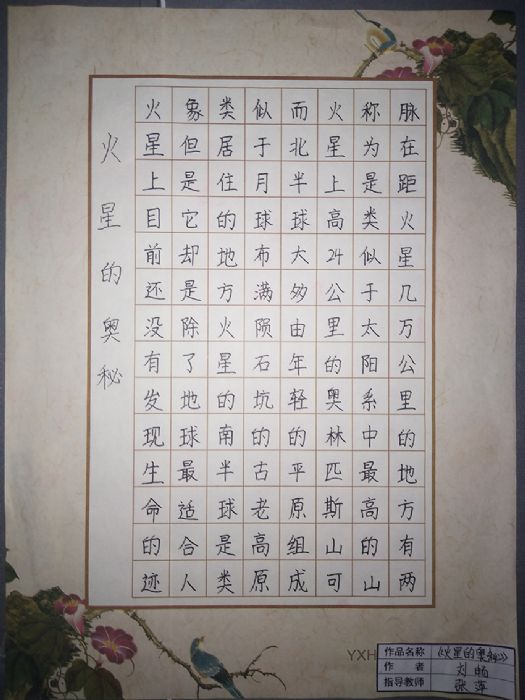 火星的奥秘
火星上目前还没有发现生命的迹
象但是它却是除了地球最适合人
类居住的地方火星的南半球是类
似于月球布满陨石坑的古老高原
而北半球大多由年轻的平原组成
火星上高24公里的奥林匹斯山可
称为是类似于太阳系中最高的山
脉在距火星几万公里的地方有两
YXH
作品名称 《火星的奥秘》
作者 刘畅
指导教师 张萍